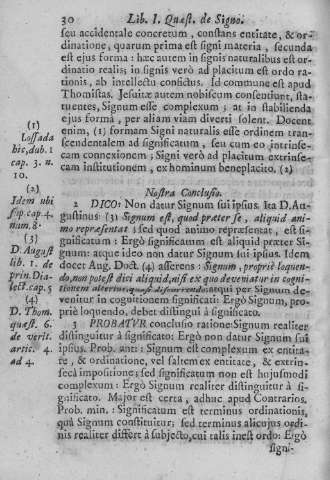 30 Lib. I. Quæst. de Signo.
seu accidentale concretum, constans entitate, & or-
dinatione, quarum prima est signi materia, secunda
est ejus forma: hæc autem in signis naturalibus est or-
dinatio realis; in signis verò ad placitum est ordo ra-
tionis, ab intellectu confictus. Id commune est apud
Thomistas. Jesuitæ autem nobiscum consentiunt, sta-
tuentes, Signum esse complexum; at in stabilienda
ejus forma, per aliam viam diverti solent. Docent
enim, (1) formam Signi naturalis esse ordinem tran-
scendentalem ad significatum, seu cum eo intrinse-
cam connexionem; Signi verò ad placitum extrinse-
cam institutionem, ex hominum beneplacito. (2)
(1)
Lossada
hic, dub. 1
cap. 3. n.
10.
(2)
Idem ubi
sup. cap. 4.
num. 8.
(3)
D. August
lib. 1. de
prin. Dia-
lect. cap. 5
(4)
D. Thom.
quæst. 6.
de verit.
artic. 4.
ad 4.
Nostra Conclusio.
2 DICO: Non datur Signum sui ipsius. Ita D. Au-
gustinus: (3) Signum est, quod præter se, aliquid ani-
mo repræsentat; sed quod animo repræsentat, est si-
gnificatum: Ergò significatum est aliquid præter Si-
gnum: atque ideo non datur Signum sui ipsius. Idem
docet Aug. Doct. (4) asserens: Signum, propriè loquen-
do, non potest dici aliquid, nisi ex quo deveniatur in cogni-
tionem alterius; sed atqui per Signum de-
venitur in cognitionem significati: Ergò Signum, pro-
priè loquendo, debet distingui à significato.
3 PROBATUR conclusio ratione: Signum realiter
distinguitur à significato: Ergò non datur Signum sui
ipsius. Prob. ant: Signum est complexum ex entita-
te, & ordinatione, vel saltem ex entitate, & extrin-
secà impositione; sed significatum non est hujusmodi
complexum: Ergò Signum realiter distinguitur à si-
gnificato. Major est certa, adhuc apud Contrarios.
Prob. min.: Significatum est terminus ordinationis,
quâ Signum constituitur; sed terminus alicujus ordi-
nis realiter differt à subjecto, cui talis inest ordo: Ergò
signi-